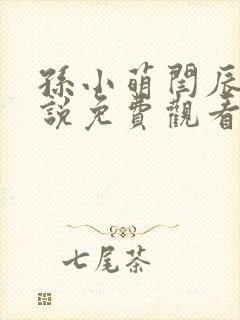 孫小萌閆辰
說免費觀看
七尾茶